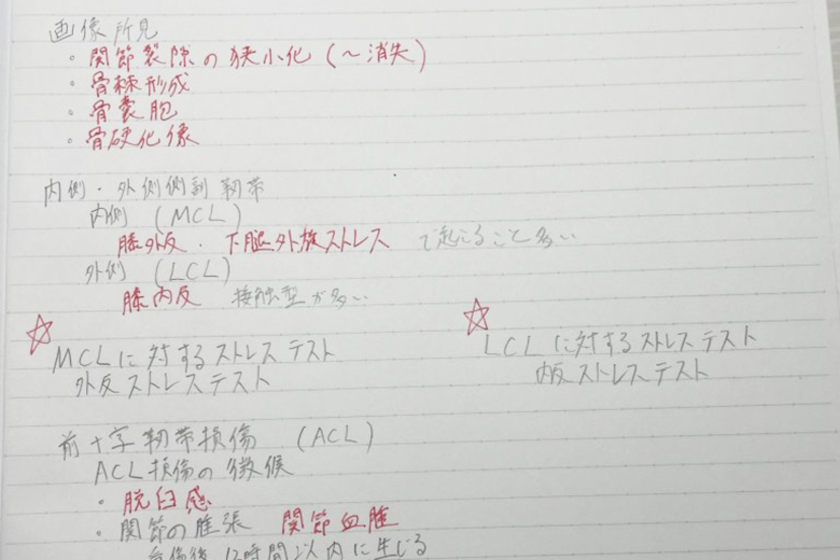 画像所見
・関節裂隙の狭小化(〜消失)
・骨棘形成
・骨嚢胞
・骨硬化像
内側・外側側副靭帯
内側 (MCL)
膝外反・下腿外旋ストレス で起こること多い
外側 (LCL)
膝内反 接触型が多い
☆
MCLに対するストレステスト
外反ストレステスト
☆
LCLに対するストレステスト
内反ストレステスト
前十字靭帯損傷 (ACL)
ACL損傷の徴候
・脱臼感
・関節の腫張 関節血腫
受傷後12時間以内に生じる